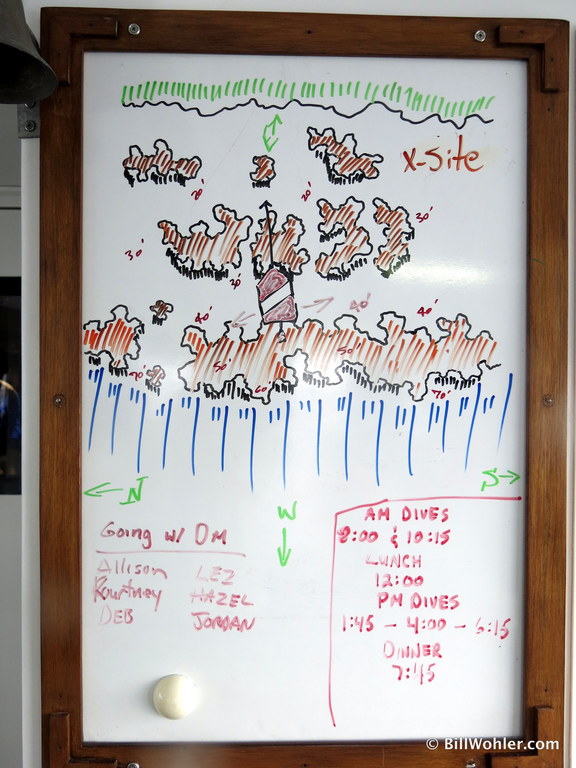 X-Site
20'
20'
20'
30'
20'
40'
40'
40'
50'
50'
60'
70'
70'
N
S
W
Going w/ DM
Allison LEZ
Kourtney HAZEL
DEB JORDAN
AM DIVES
8:00 & 10:15
LUNCH
12:00
PM DIVES
1:45 - 4:00 - 6:15
DINNER
7:45
© BillWohler.com